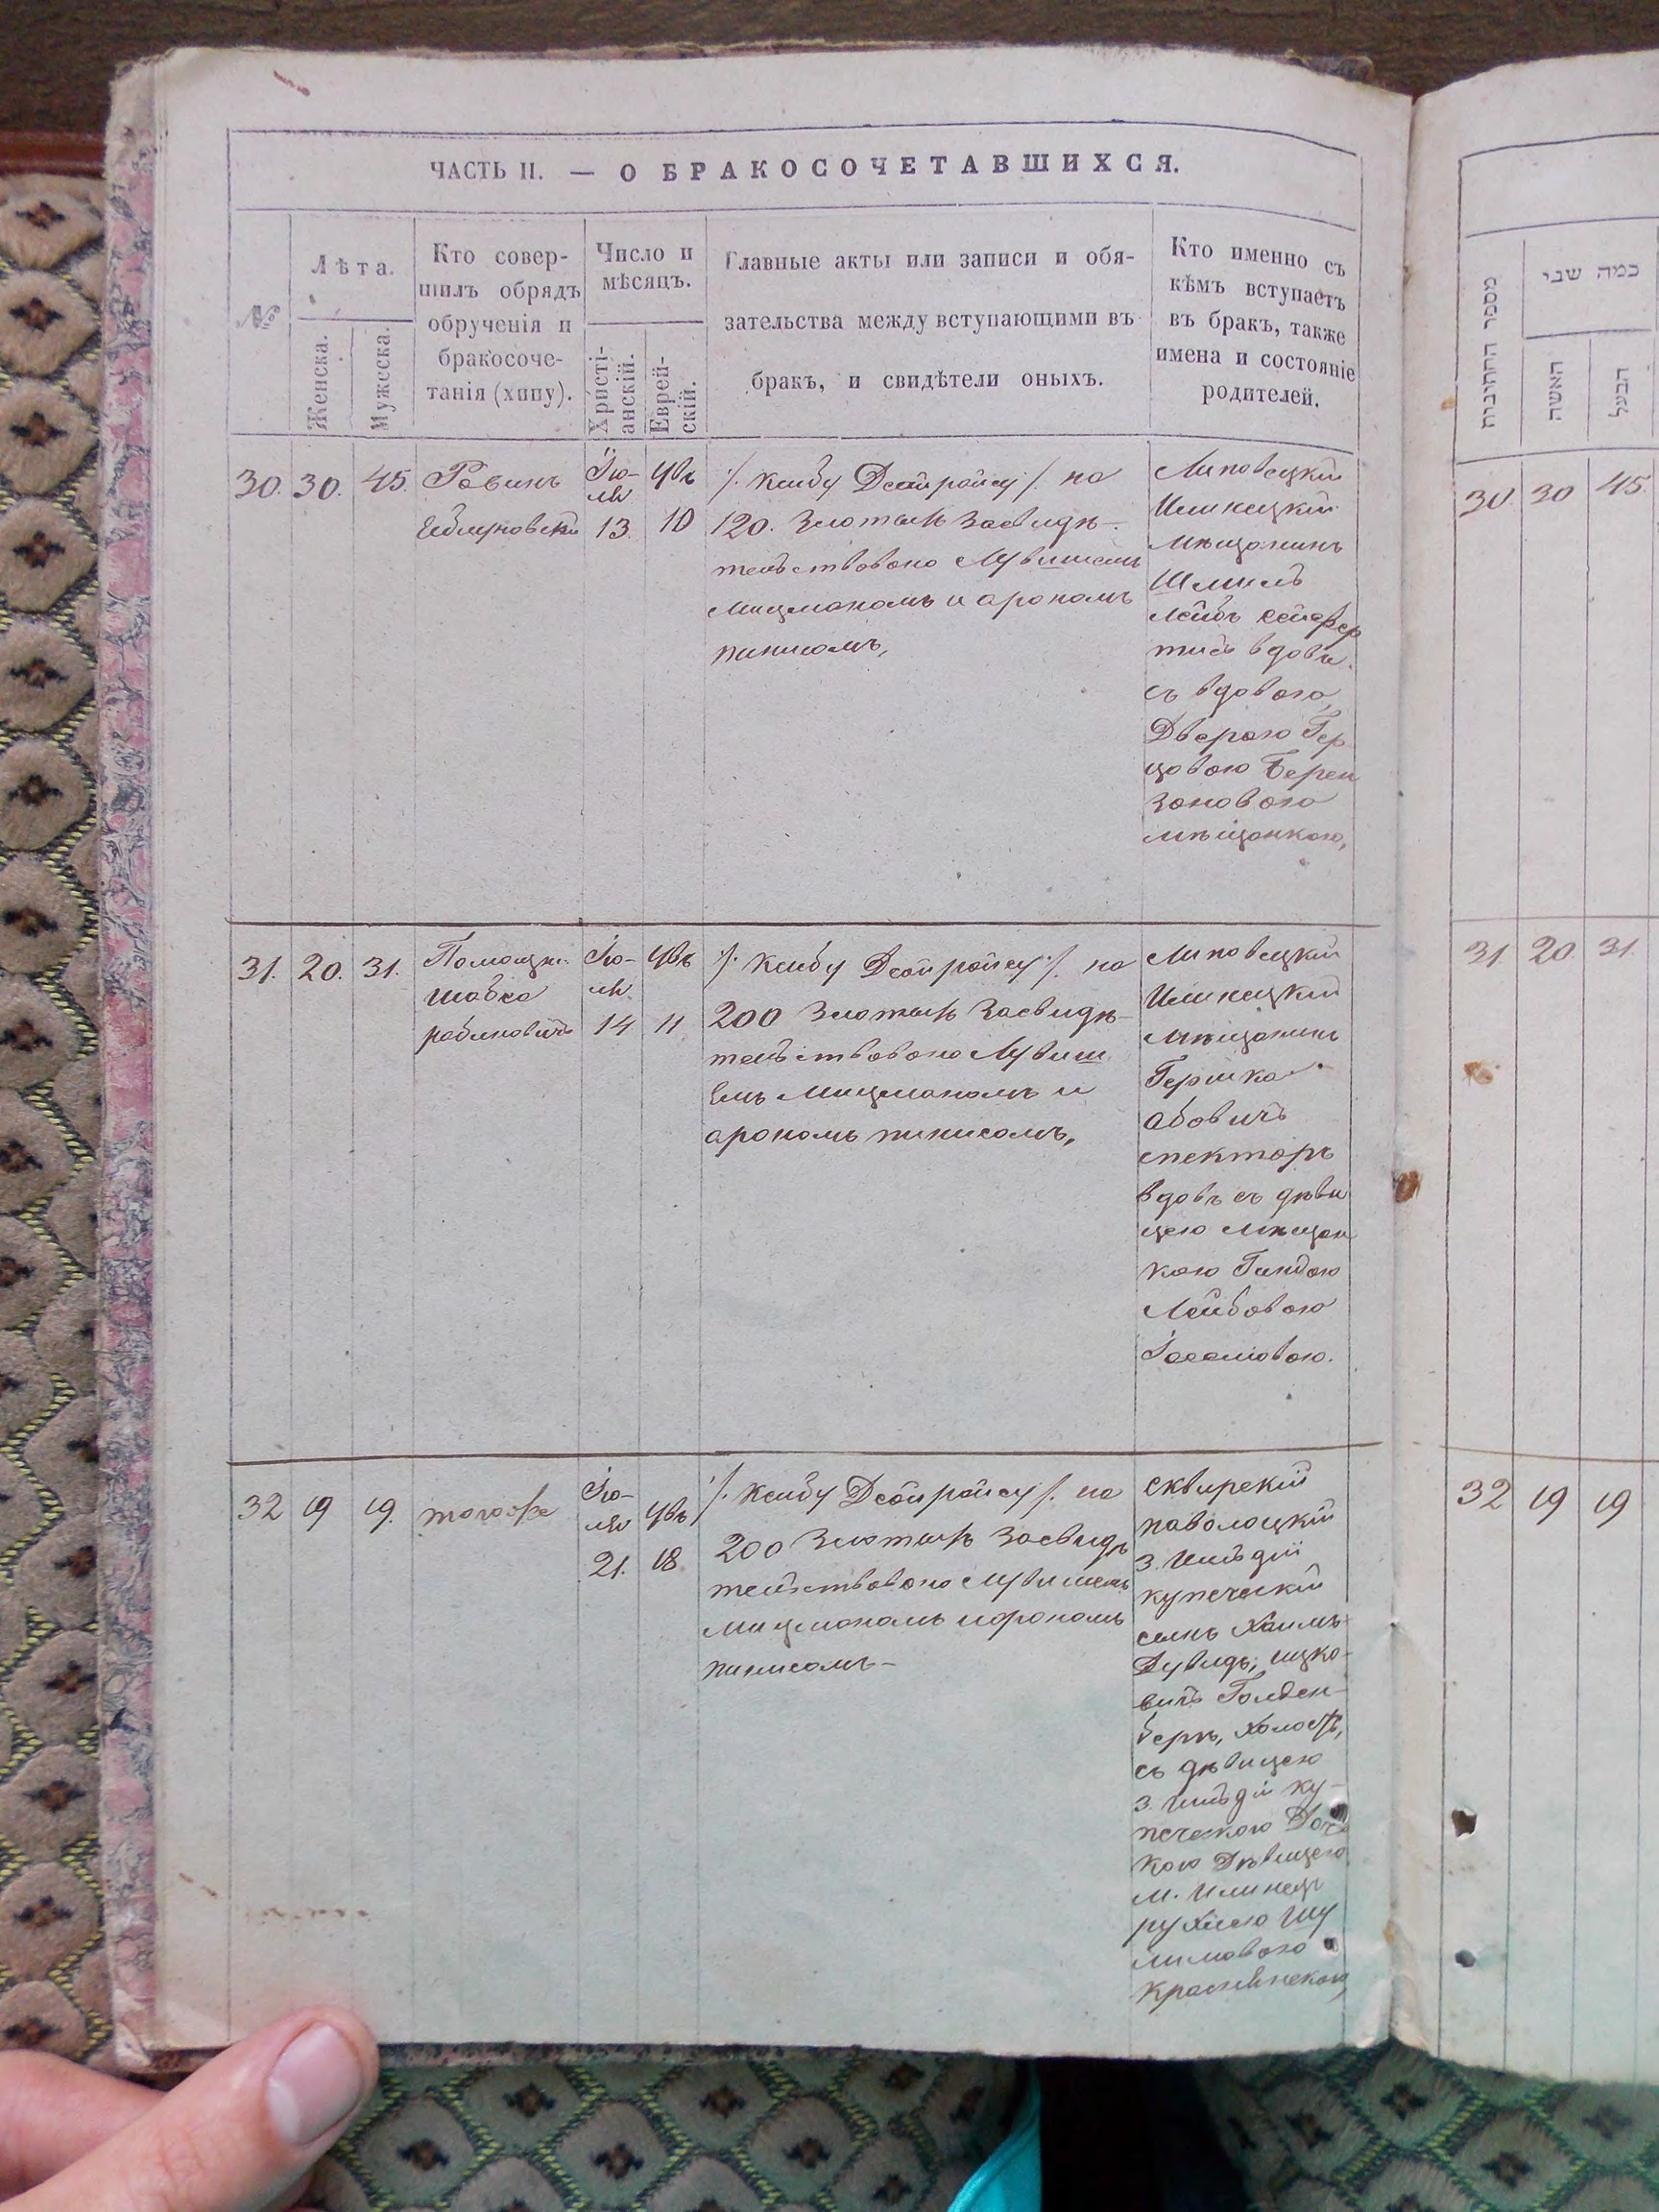 ЧАСТЬ II. — О БРАКОСОЧЕТАВШИХСЯ.
№
Лѣта.
Женска.
Мужеска.
Кто совер-
шилъ обрядъ
обрученія и
бракосоче-
танія (хипу).
Число и
мѣсяцъ.
Христі-
анскій.
Еврей-
скій.
Главные акты или записи и обя-
зательства между вступающими въ
бракъ, и свидѣтели оныхъ.
Кто именно съ
кѣмъ вступаетъ
въ бракъ, также
имена и состояніе
родителей.
30.
30.
45.
Равинъ
Ію-
ля
13.
10
на
120. Злотыхъ Засвидѣ-
тельствовано
Мицманомъ и арономъ
пинисомъ,
Липовецкій
Илинецкій
мѣщанинъ
Шмиль
Лейбъ
съ вдовою,
Двероюо Гер
цовою Берен
зоновою
мѣщанкою,
31.
20.
31.
Помощн.
шавса
рабиновичъ
Ію-
ля
14
11
на
200 Злотыхъ Засвидѣ-
тельствовано
Мицманомъ и
арономъ пинисомъ,
Липовецкій
Илинецкій
мѣщанинъ
Гершко
абовичъ
спекторъ
вдовъ съ дѣви
цею мѣщан
кою
Лейбовою
32
19
19.
тогоже
Ію-
ля
21.
18
на
200 Злотыхъ Засвидѣ
тельствовано
Мицманомъ и арономъ
пинисомъ-
сквирскій
паволоцкій
3. гильдіи
купеческій
сынъ Хаимъ
Дувидъ, ицко-
вичъ Голден-
берг, холостъ,
съ дѣвицею
3. гильдіи ку-
печескою Доч
кою Дѣвицею
м. Илинецъ
рухлею Шу
лимовою
מספר החתונות
כמה שני
האשה
הבעל
30
30
45
31
20
31.
32
19
19